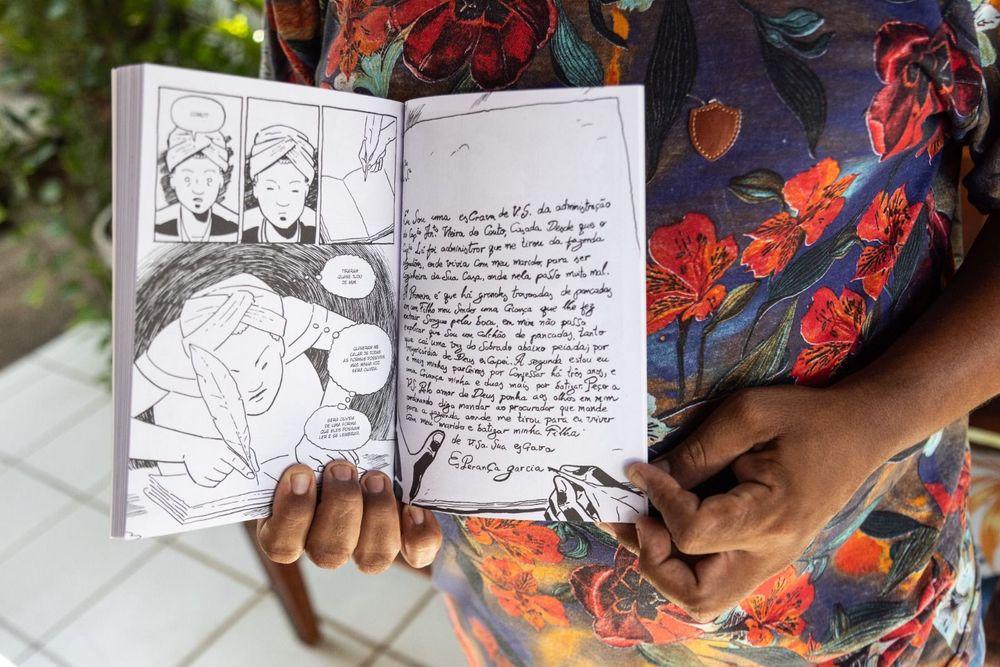 COMO?
TIRARAM
QUASE TUDO
DE MIM.
QUISERAM ME
CALAR DE TODAS
AS FORMAS POSSÍVEIS,
MAS MINHA VOZ
SERÁ OUVIDA.
SERÁ OUVIDA
DE UMA FORMA
QUE ELES POSSAM
LER E SE LEMBRAR.
Eu Sou uma esCrava de V.S. da administração
do Cap João Vieira do Couto, Cazada Desde que o
Cap Lá foi administrar que me tirou da fazenda
algodois, onde vivia Com meu marido, para ser
Cozinheira da Sua Casa, onde nela passo muito mal.
A Primeira, é que há grandes trovoadas de pancadas
em um Filho meu Sendo uma Criança que lhe fez
extrair Sangue pela boca, em mim não posso
explicar que Sou um Colchão de pancadas, tanto
que caí uma vez do Sobrado abaixo peiada; por
misericórdia de Deus esCapei. A segunda estou eu
e mais minhas parceiras por Confessar há três anos, e
uma Criança minha e duas mais por batizar. Peço a
V.S. Pelo amor de Deus ponha aos olhos em mim
ordinando digo mandar ao procurador que mande
para a fazenda aonde me tirou para eu viver
Com meu marido e batizar minha Filha
de V.Sa. Sua esCrava
EsPerança garcia